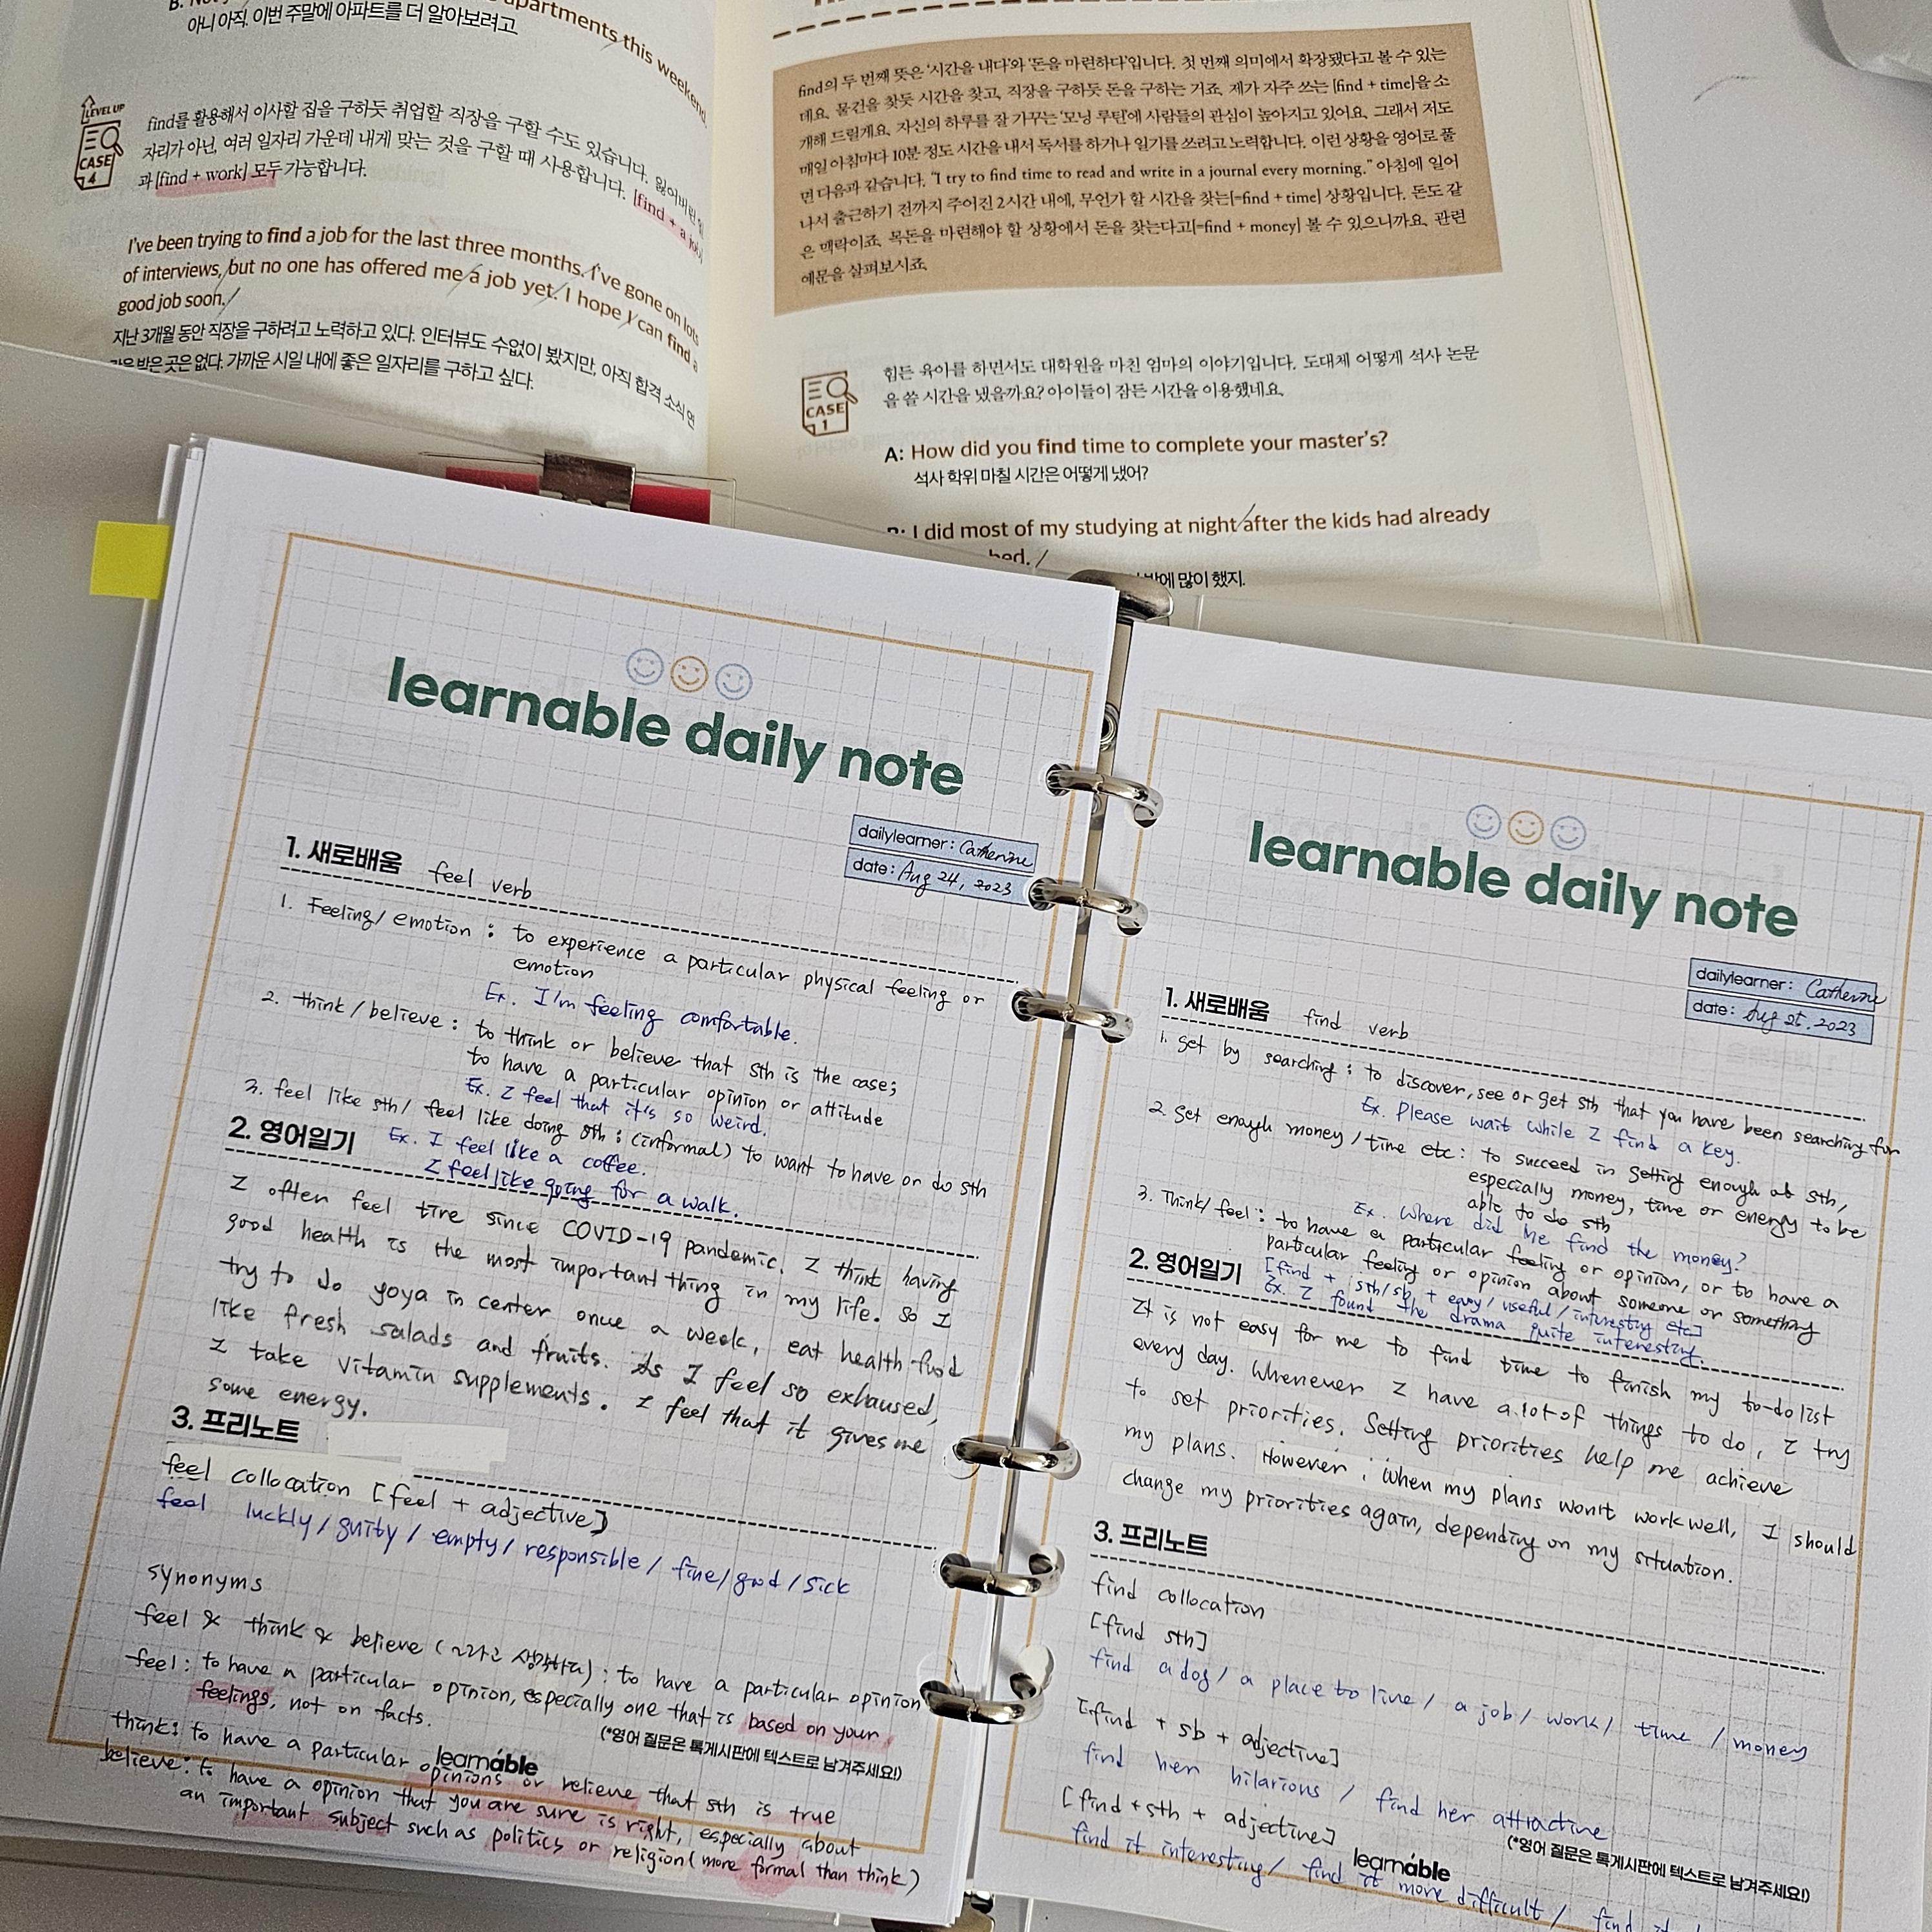 partments this weekend.
아니 아직. 이번 주말에 아파트를 더 알아보려고
LEVEL UP
CASE
4
find를 활용해서 이사할 집을 구하듯 취업할 직장을 구할 수도 있습니다. 잃어버린
자리가 아닌, 여러 일자리 가운데 내게 맞는 것을 구할 때 사용합니다. [find + a job]
과 [find + work] 모두 가능합니다.
I've been trying to find a job for the last three months. I've gone on lots
of interviews, but no one has offered me a job yet. I hope I can find a
good job soon.
지난 3개월 동안 직장을 구하려고 노력하고 있다. 인터뷰도 수없이 봤지만, 아직 합격 소식
받은 곳은 없다. 가까운 시일 내에 좋은 일자리를 구하고 싶다.
find의 두 번째 뜻은 '시간을 내다'와 '돈을 마련하다'입니다. 첫 번째 의미에서 확장됐다고 볼 수 있는
데요. 물건을 찾듯 시간을 찾고, 직장을 구하듯 돈을 구하는 거죠. 제가 자주 쓰는 [find + time]을 소
개해 드릴게요. 자신의 하루를 잘 가꾸는 '모닝 루틴'에 사람들의 관심이 높아지고 있어요. 그래서 저도
매일 아침마다 10분 정도 시간을 내서 독서를 하거나 일기를 쓰려고 노력합니다. 이런 상황을 영어로 풀
면 다음과 같습니다. "I try to find time to read and write in a journal every morning." 아침에 일어
나서 출근하기 전까지 주어진 2시간 내에, 무언가 할 시간을 찾는[=find + time] 상황입니다. 돈도 같
은 맥락이죠. 목돈을 마련해야 할 상황에서 돈을 찾는다고[=find + money] 볼 수 있으니까요. 관련
예문을 살펴보시죠.
CASE
1
힘든 육아를 하면서도 대학원을 마친 엄마의 이야기입니다. 도대체 어떻게 석사 논문
을 쓸 시간을 냈을까요? 아이들이 잠든 시간을 이용했네요.
A: How did you find time to complete your master's?
석사 학위 마칠 시간은 어떻게 냈어?
I did most of my studying at night after the kids had already
bed.
밤에 많이 했지.
learnable daily note
dailylearner: Catherine
date: Aug 24, 2023
1. 새로배움 feel verb
1. Feeling/emotion : to experience a particular physical feeling or
emotion
Ex. I'm feeling comfortable.
2. think/believe : to think or believe that sth is the case;
to have a particular opinion or attitude
Ex. I feel that it's so weird.
3. feel like sth/ feel like doing sth : (informal) to want to have or do sth
2. 영어일기 Ex. I feel like a coffee.
I feel like going for a walk.
I often feel tire since COVID-19 pandemic. I think having
good health is the most important thing in my life. so I
try to do yoya in center onue a week, eat health-food
like fresh salads and fruits. As I feel so exhaused,
I take vitamin supplements. I feel that it gives me
some energy.
3. 프리노트
feel collocation [feel + adjective]
feel luckly/guity/ empty/ responsible/ fine/good/sick
synonyms
feel & think & believe (~라고 생각하다) : to have a particular opinion
feel: to have a particular opinion, especially one that is based on your
feelings, not on facts.
(*영어 질문은 톡게시판에 텍스트로 남겨주세요!)
learnáble
think: to have a particular opinions or relieve that sth is true
believe: to have a opinion that you are sure is right, especially about
an important subject such as politics or religion (more formal than think)
learnable daily note
dailylearner: Catherine
date: Aug 25, 2023
1. 새로배움 find verb
1. get by searching : to discover, see or get sth that you have been searching for
Ex. Please wait while I find a key.
2. get enough money/time etc: to succeed in getting enough of sth,
especially money, time or energy to be
able to do sth
Ex. Where did he find the money?
3. Think/feel : to have a particular feeling or opinion, or to have a
particular feeling or opinion about someone or something
2. 영어일기 [find + sth/sb + easy/useful/interesting etc]
Ex. I found the drama quite interesting.
It is not easy for me to find time to finish my to-do list
every day. Whenever I have a lot of things to do, I try
to set priorities. Setting priorities help me achieve
my plans. However, when my plans won't work well, I should
change my priorities again, depending on my situation.
3. 프리노트
find collocation
[find sth]
find a dog/ a place to live/ a job/ work/ time / money
[find + sb + adjective]
find her hilarious / find her attractive
[find + sth + adjective]
(*영어 질문은 톡게시판에 텍스트로 남겨주세요!)
learnáble
find it interesting/ find it more difficult/ find it